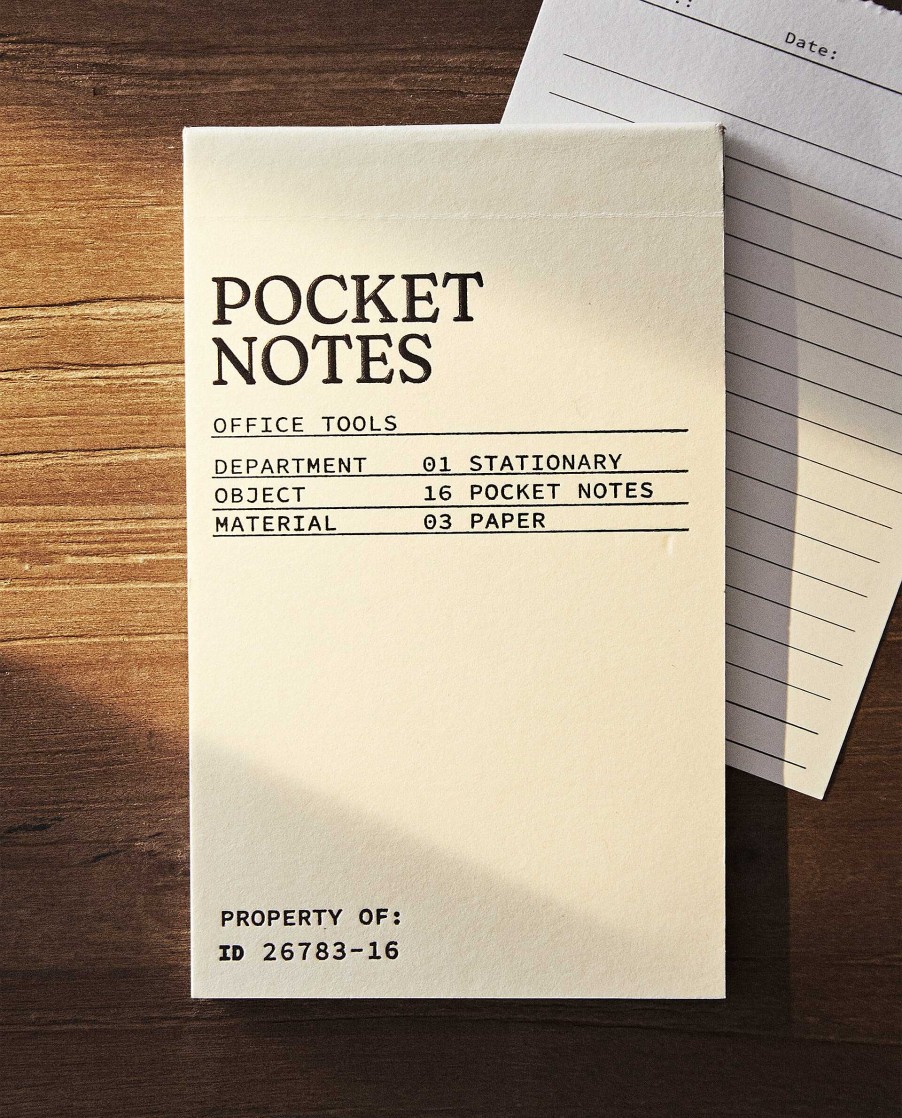 Date:
POCKET
NOTES
OFFICE TOOLS
DEPARTMENT 01 STATIONARY
OBJECT 16 POCKET NOTES
MATERIAL 03 PAPER
PROPERTY OF:
ID 26783-16